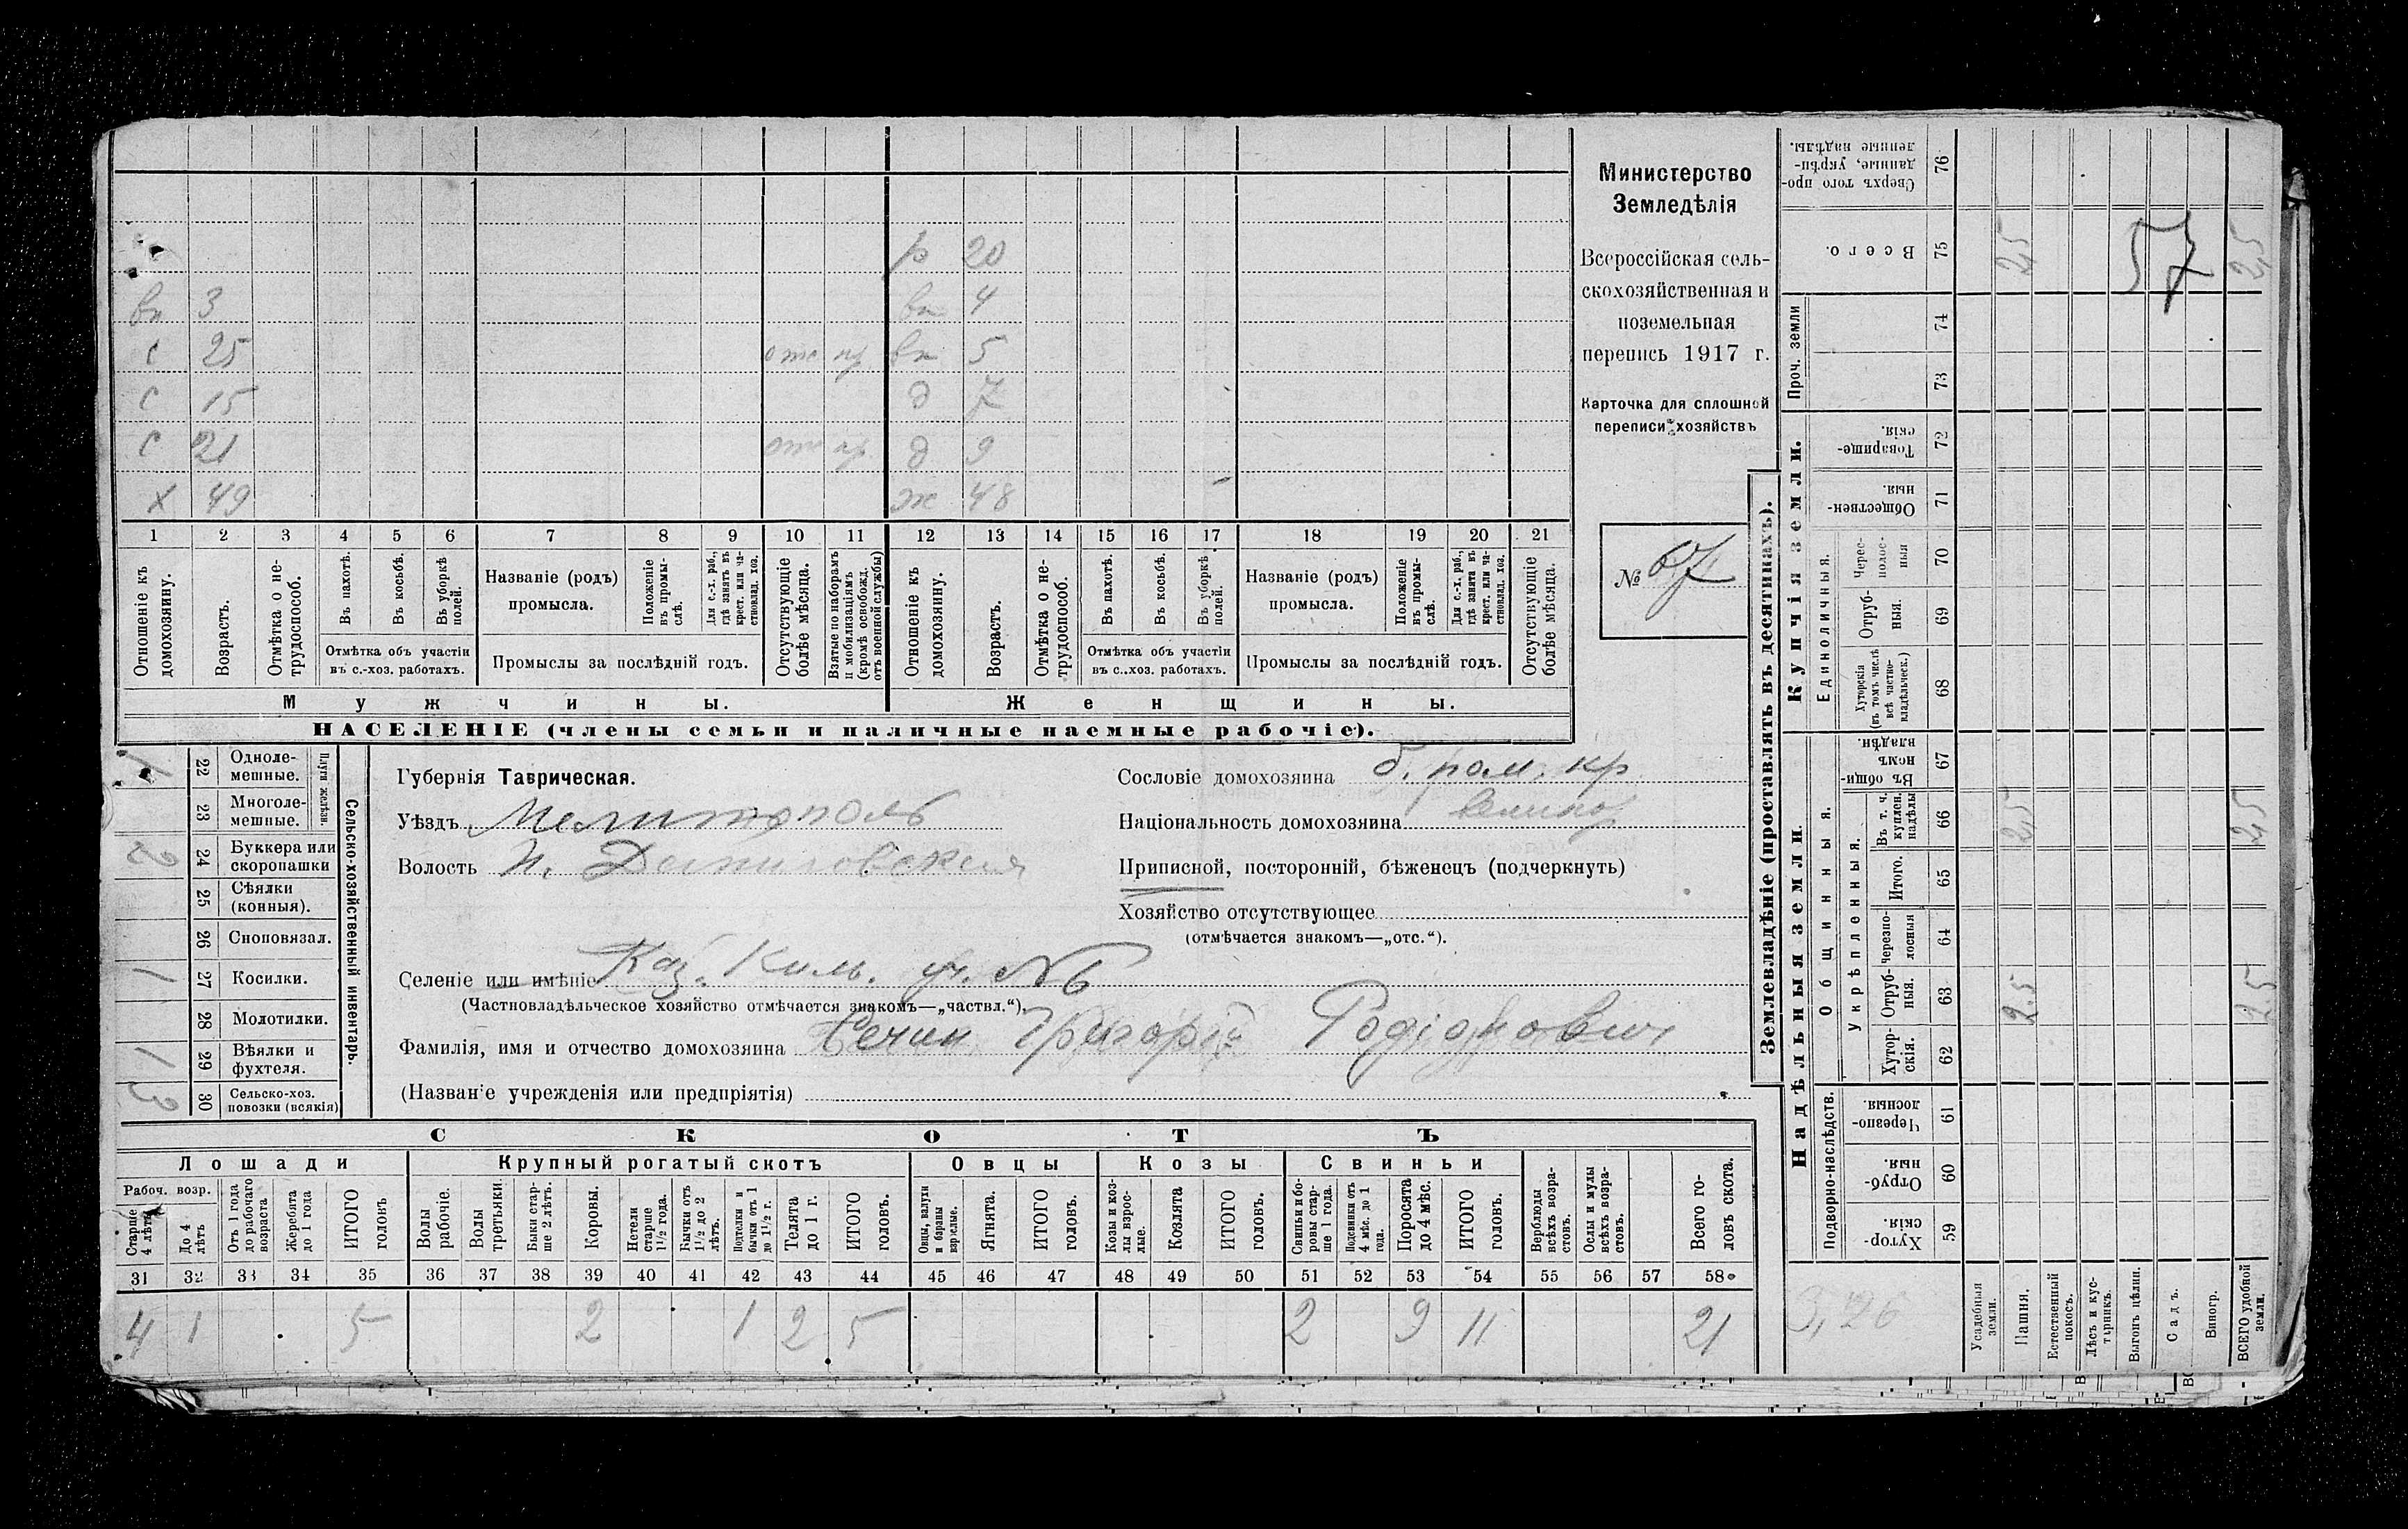 р 20
вн 3 вн 4
с 25 отс пр. вн 5
с 15 д 7
с 21 отс пр. д 9
х 49 ж 48
1 2 3 4 5 6 7 8 9 10 11 12 13 14 15 16 17 18 19 20 21
Отношеніе къ домохозяину.
Возрастъ.
Отмѣтка о не-трудоспособ.
Въ пахотѣ.
Въ косьбѣ.
Въ уборкѣ полей.
Отмѣтка объ участіи въ с.-хоз. работахъ.
Названіе (родъ) промысла.
Положеніе въ промы-слѣ.
Для с.-х. раб., гдѣ занятъ въ крест. или ча-стновлад. хоз.
Промыслы за послѣдній годъ.
Отсутствующіе болѣе мѣсяца.
Взятые по наборамъ и мобилизаціямъ (кромѣ освобожд. отъ военной службы)
Отношеніе къ домохозяину.
Возрастъ.
Отмѣтка о не-трудоспособ.
Въ пахотѣ.
Въ косьбѣ.
Въ уборкѣ полей.
Отмѣтка объ участіи въ с..хоз. работахъ.
Названіе (родъ) промысла.
Положеніе въ промы-слѣ.
Для с.-х. раб., гдѣ занята въ крест. или ча-стновлад. хоз.
Промыслы за послѣдній годъ.
Отсутствующіе болѣе мѣсяца.
Мужчины. Женщины.
НАСЕЛЕНІЕ (члены семьи и наличные наемные рабочіе).
Министерство
Земледѣлія
Всероссійская сель-
скохозяйственная и
поземельная
перепись 1917 г.
Карточка для сплошной
переписи хозяйствъ
№ 67
Сельско-хозяйственный инвентарь.
Плуги желѣзн.
22 Одноле-мешные. 1
23 Многоле-мешные.
24 Буккера или скоропашки 2
25 Сѣялки (конныя).
26 Сноповязал.
27 Косилки. 1
28 Молотилки.
29 Вѣялки и фухтеля. 1
30 Сельско-хоз. повозки (всякія) 3
Губернія Таврическая.
Уѣздъ Мелитополь
Волость Н. Даниловская
Селеніе или имѣніе Каз. Киль. уч. № 6
(Частновладѣльческое хозяйство отмѣчается знакомъ—„частвл.“).
Фамилія, имя и отчество домохозяина Григорій Родіонович
(Названіе учрежденія или предпріятія)
Сословіе домохозяина б. пом. кр
Національность домохозяина великор
Приписной, посторонній, бѣженецъ (подчеркнуть)
Хозяйство отсутствующее
(отмѣчается знакомъ—„отс.“).
СКОТЪ
Лошади Крупный рогатый скотъ Овцы Козы Свиньи
Рабоч. возр.
Старше 4 лѣтъ
До 4 лѣтъ
Отъ 1 года до рабочаго возраста
Жеребята до 1 года
ИТОГО головъ
Волы рабочіе.
Волы третьяки.
Быки стар-ше 2 лѣтъ.
Коровы.
Нетели старше 1 1/2 года.
Бычки отъ 1 1/2 до 2 лѣтъ.
Подтелки и бычки отъ 1 до 1 1/2 г.
Телята до 1 г.
ИТОГО головъ.
Овцы, валухи и бараны взрослые.
Ягнята.
ИТОГО головъ.
Козы и коз-лы взрос-лые.
Козлята
ИТОГО головъ.
Свиньи и бо-ровы стар-ше 1 года.
Подсвинки отъ 4 мѣс. до 1 года.
Поросята до 4 мѣс.
ИТОГО головъ.
Верблюды всѣхъ возра-стовъ.
Ослы и мулы всѣхъ возра-стовъ.
Всего го-ловъ скота.
31 32 33 34 35 36 37 38 39 40 41 42 43 44 45 46 47 48 49 50 51 52 53 54 55 56 57 58
4 1 5 2 1 2 5 2 9 11 21
Землевладѣніе (проставлять въ десятинахъ).
Надѣльныя земли. Купчія земли. Проч. земли
Подворно-наслѣдств. Общинныя. Укрѣпленныя. Единоличныя.
59 Хутор-скія.
60 Отруб-ныя.
61 Черезпо-лосныя.
62 Хутор-скія.
63 Отруб-ныя. 25 25
64 черезпо-лосныя
65 Итого.
66 Въ т. ч. куплен. надѣлы 25 25
67 Въ общи-номъ владѣн.
68 Хуторскія (въ томъ числѣ всѣ частно-владѣльческ.)
69 Отруб-ныя.
70 Черес-полос-ныя
71 Обществен-ныя.
72 Товарище-скія.
73
74
75 Всего. 25 25
76 Сверхъ того про-данные, укрѣп-ленные надѣлы.
57
3,26
Усадебныя земли.
Пашня.
Естественный покосъ.
Лѣсъ и кус-тарникъ.
Выгонъ цѣлин.
Садъ.
Виногр.
ВСЕГО удобной земли.